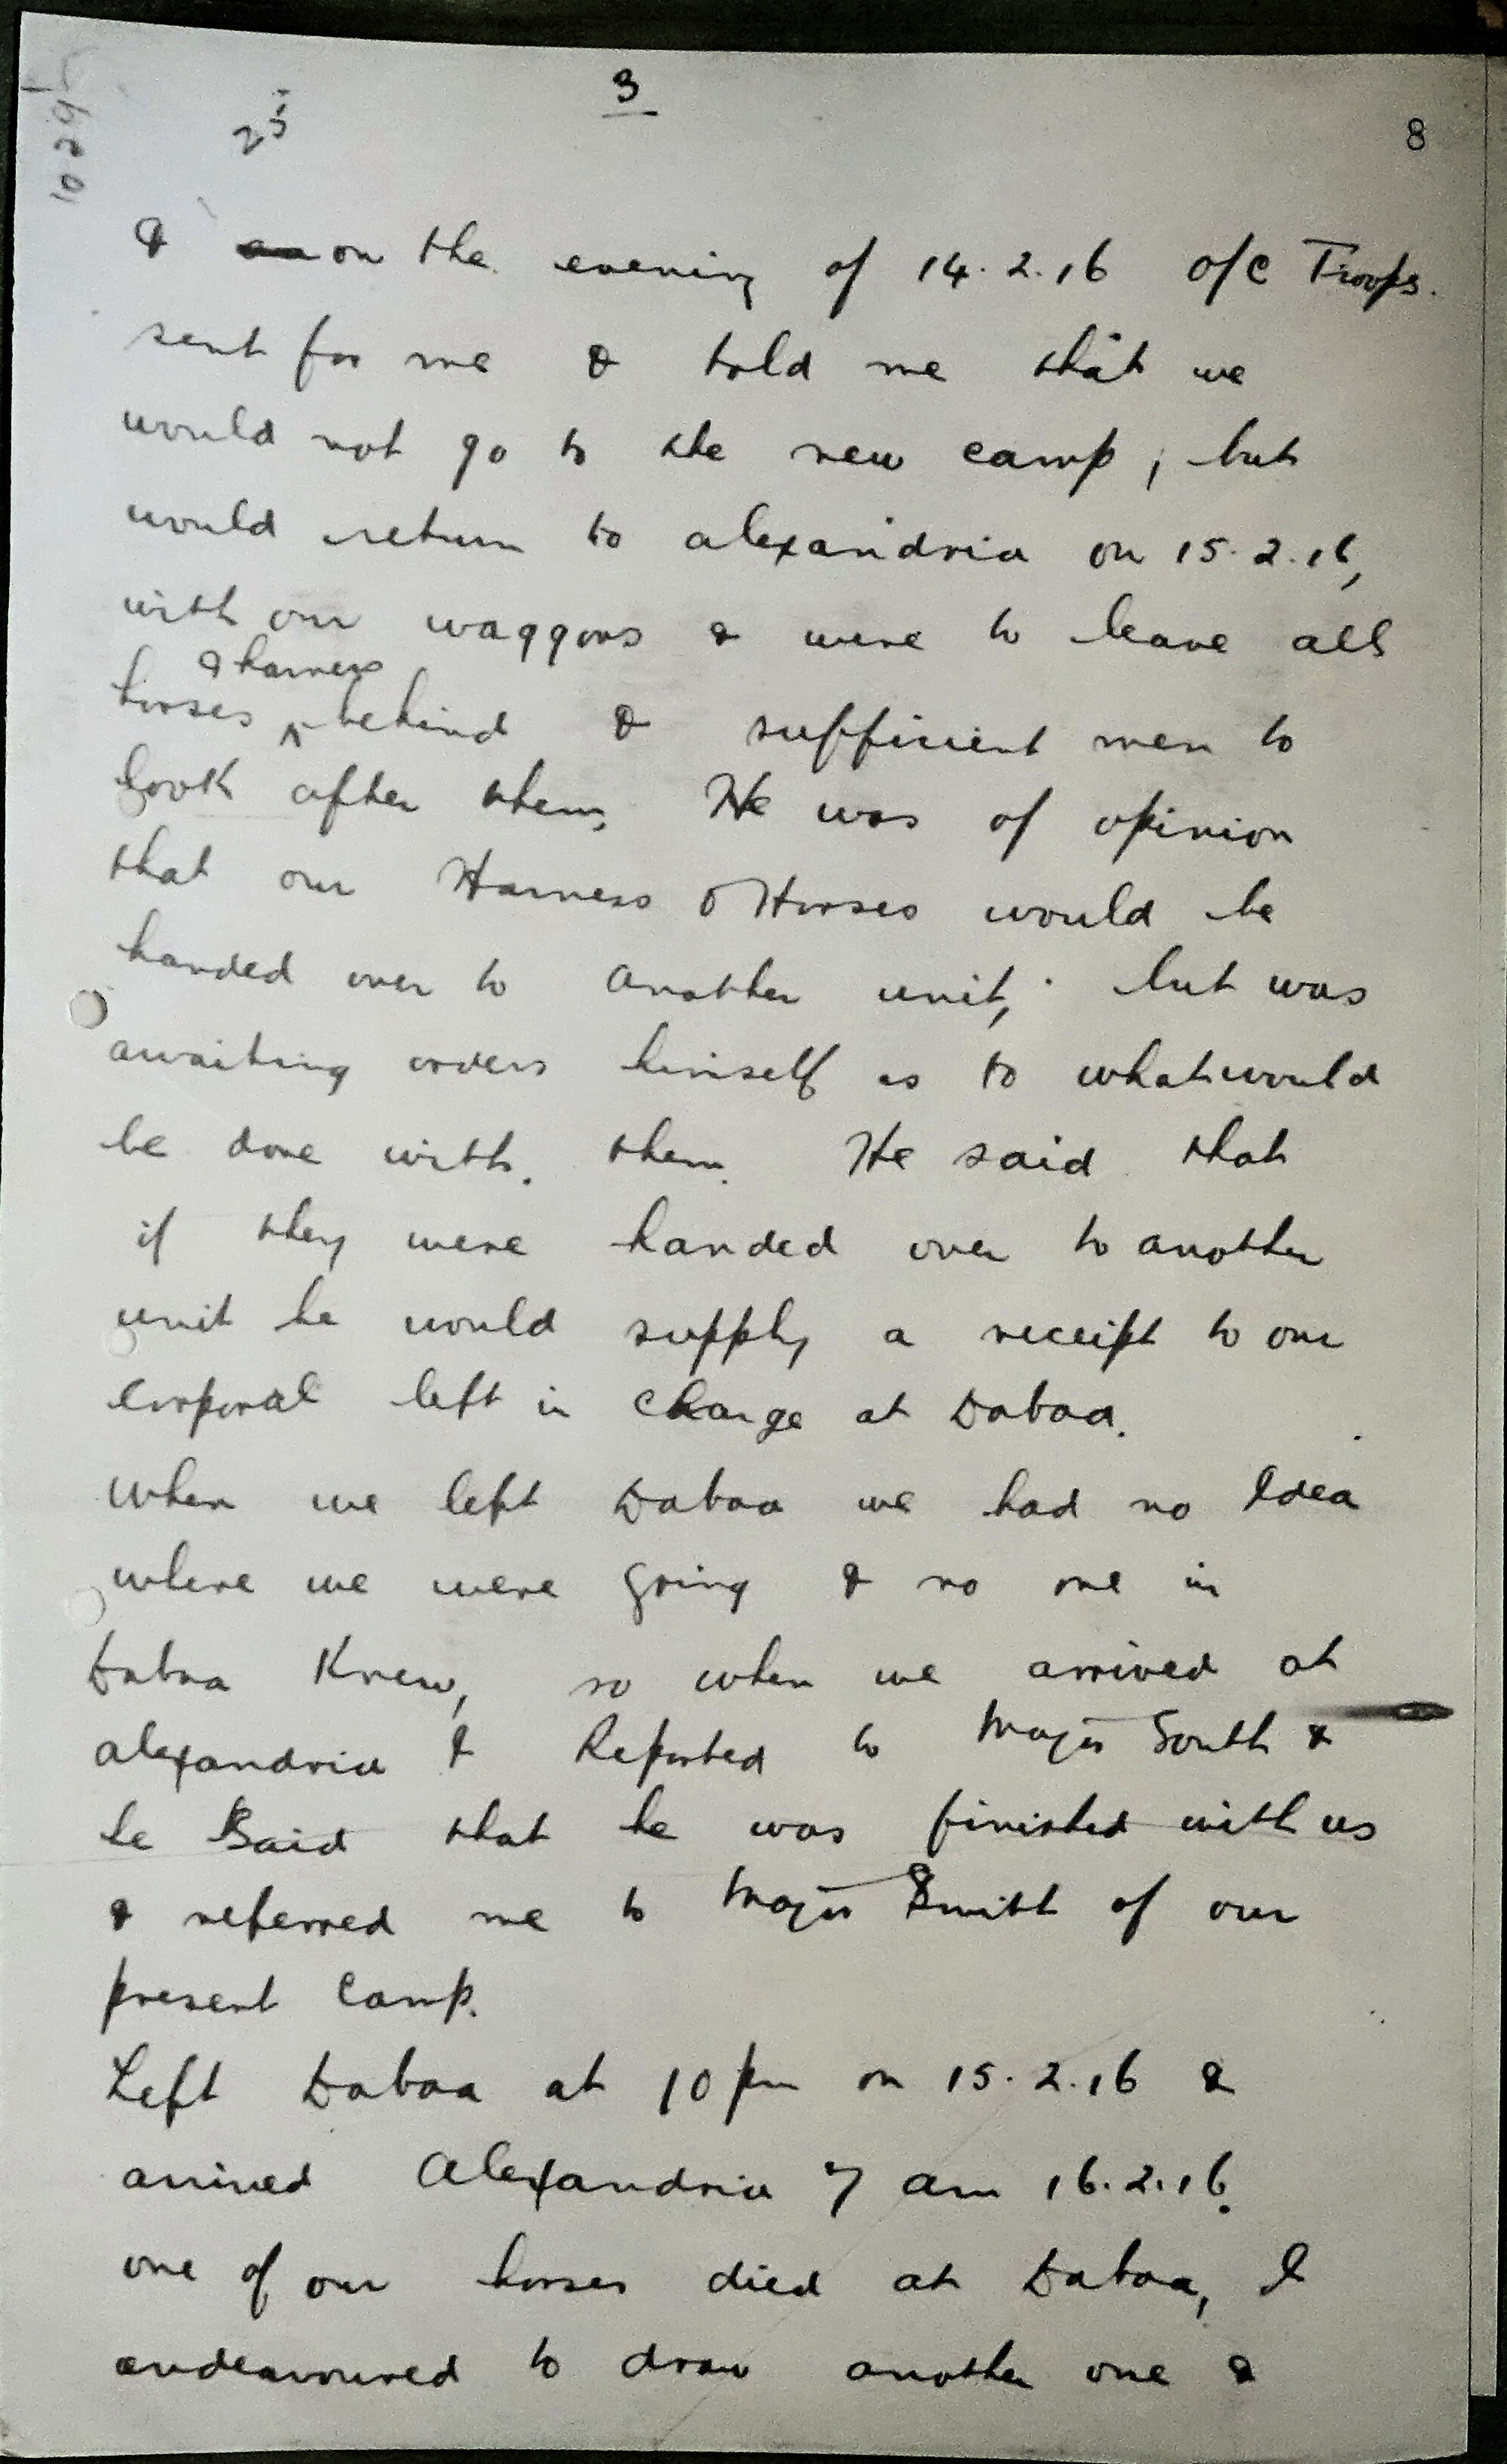 3
25
8
& on the evening of 14.2.16 O/C Troops.
sent for me & told me that we
would not go to the new camp, but
would return to alexandria on 15.2.16,
with our waggons & were to leave all
& harness
horses ^ behind & sufficient men to
look after them, He was of opinion
that our Harness & Horses would be
handed over to another unit, but was
awaiting orders himself as to what would
be done with. them. He said that
if they were handed over to another
unit he would supply a receipt to our
Corporal left in charge at Dabaa.
When we left Dabaa we had no Idea
where we were going & no one in
Dabaa Knew, so when we arrived at
alexandria I Reported to Major South &
he Said that he was finished with us
& referred me to Major Smith of our
present Camp.
Left Dabaa at 10 pm on 15.2.16 &
arrived Alexandria 7 am 16.2.16.
one of our horses died at Dabaa, I
endeavoured to draw another one &